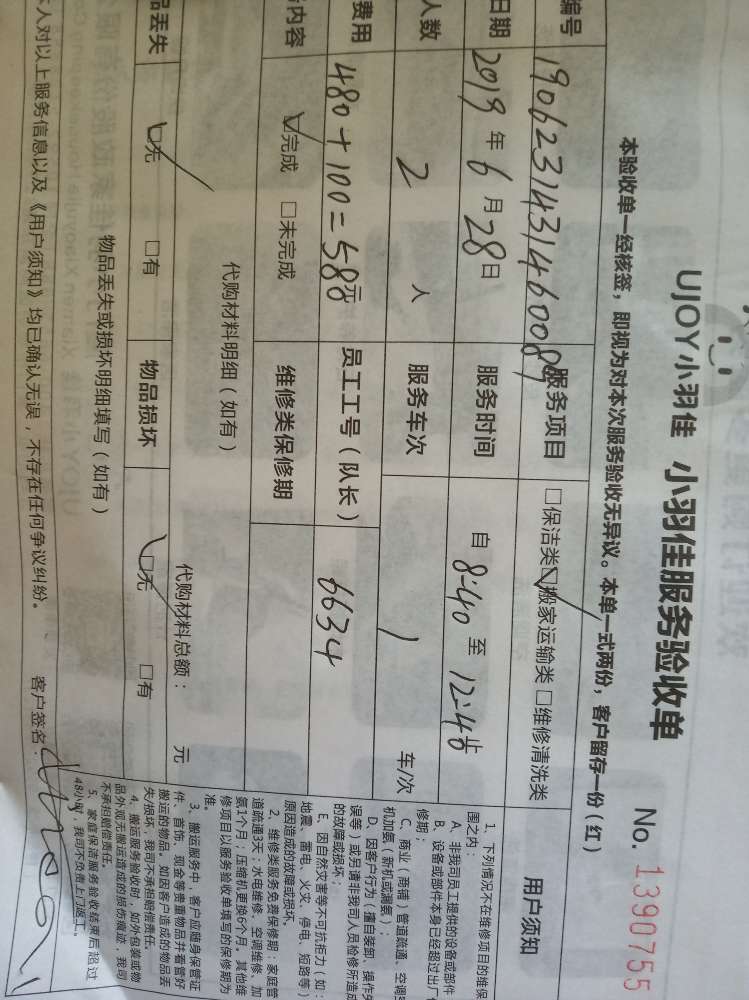 UJOY小羽佳 小羽佳服务验收单 No. 1390755
本验收单一经核签，即视为对本次服务验收无异议。本单一式两份，客户留存一份（红）
编号 190623143146008 服务项目 □保洁类 ☑搬家运输类 □维修清洗类
日期 2019年6月28日 服务时间 自 8:40 至 12:46 止
人数 2 人 服务车次 1 车/次
费用 480+100=580元 员工工号（队长） 6634
内容 ☑完成 □未完成 维修类保修期
代购材料明细（如有） 代购材料总额： 元
品丢失 ☑无 □有 物品损坏 ☑无 □有
物品丢失或损坏明细填写（如有）
本人对以上服务信息以及《用户须知》均已确认无误，不存在任何争议纠纷。 客户签名：
用户须知
1、下列情况不在维修项目的维保
围之内：
A、非我司员工提供的设备或部件
B、设备或部件本身已经超过出厂
修期；
C、商业（商铺）管道疏通、空调
机加氨（新机或漏氨）；
D、因客户行为（擅自装卸、操作失
误等）或另请非我司人员检修所造成
的故障或损坏；
E、因自然灾害等不可抗拒力（如：
地震、雷电、火灾、停电、短路等）
原因造成的故障或损坏。
2、维修类服务免费保修期：家庭管
道疏通3天；水电维修、空调维修、加
氨1个月；压缩机更换6个月。其他维
修项目以服务验收单填写的保修期为
准。
3、搬运服务中，客户应随身保管证
件、首饰、现金等贵重物品并看管好
搬运的物品。如因客户造成的物品丢
失/损坏，我司不承担赔偿责任。
4、搬运服务验收时，如外包装或物
品外观无搬运造成的损伤痕迹，我司
不承担赔偿责任。
5、家庭保洁服务验收结束后超过
48小时，我司不负责上门返工。